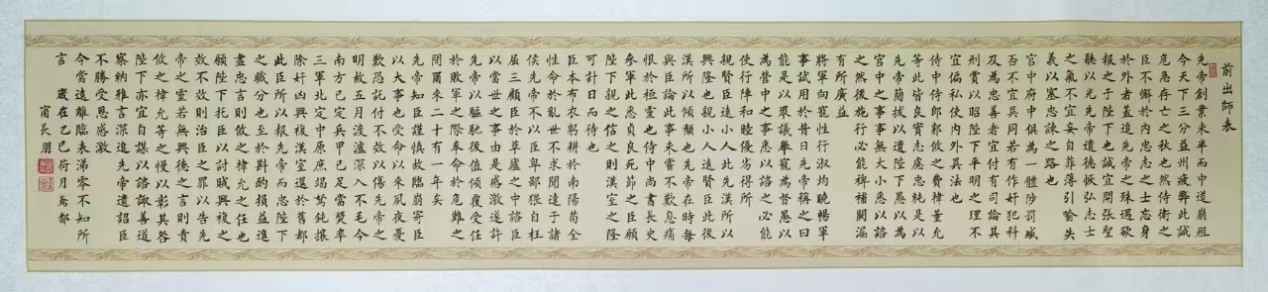 前出師表
先帝創業未半而中道崩殂
今天下三分益州疲弊此誠
危急存亡之秋也然侍衛之
臣不懈於内忠志之士忘身
於外者蓋追先帝之殊遇欲
報之于陛下也誠宜開張聖
聽以光先帝遺德恢弘志士
之氣不宜妄自菲薄引喻失
義以塞忠諫之路也
宮中府中俱為一體陟罰臧
否不宜異同若有作奸犯科
及為忠善者宜付有司論其
刑賞以昭陛下平明之理不
宜偏私使内外異法也
侍中侍郎郭攸之費禕董允
等此皆良實志慮忠純是以
先帝簡拔以遺陛下愚以為
宮中之事事無大小悉以諮
之然後施行必能裨補闕漏
有所廣益
將軍向寵性行淑均曉暢軍
事試用於昔日先帝稱之曰
能是以眾議舉寵為督愚以
為營中之事悉以諮之必能
使行陣和睦優劣得所
親賢臣遠小人此先漢所以
興隆也親小人遠賢臣此後
漢所以傾頹也先帝在時每
與臣論此事未嘗不歎息痛
恨於桓靈也侍中尚書長史
參軍此悉貞良死節之臣願
陛下親之信之則漢室之隆
可計日而待也
臣本布衣躬耕於南陽苟全
性命於亂世不求聞達于諸
侯先帝不以臣卑鄙猥自枉
屈三顧臣於草廬之中諮臣
以當世之事由是感激遂許
先帝以驅馳後值傾覆受任
於敗軍之際奉命於危難之
間爾來二十有一年矣
先帝知臣謹慎故臨崩寄臣
以大事也受命以來夙夜憂
歎恐託付不效以傷先帝之
明故五月渡瀘深入不毛今
南方已定兵甲已足當獎率
三軍北定中原庶竭駑鈍攘
除奸凶興復漢室還於舊都
此臣所以報先帝而忠陛下
之職分也至於斟酌損益進
盡忠言則攸之禕允之任也
願陛下托臣以討賊興復之
效不效則治臣之罪以告先
帝之靈若無興德之言則責
攸之禕允等之慢以彰其咎
陛下亦宜自謀以諮諏善道
察納雅言深追先帝遺詔臣
不勝受恩感激
今當遠離臨表涕零不知所
言 歲在己巳荷月 都
甯長